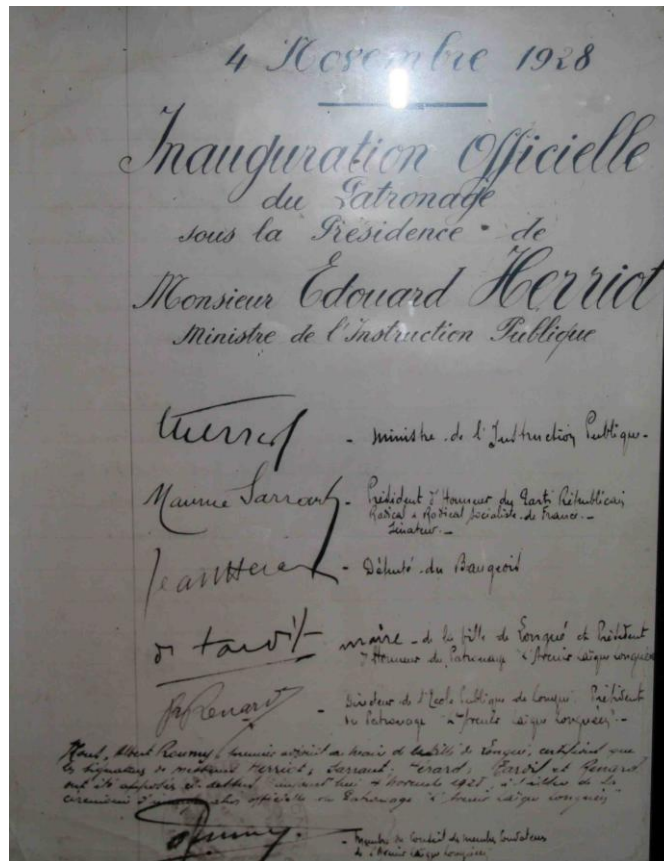 4 Novembre 1928
Inauguration Officielle
du Patronage
sous la Présidence de
Monsieur Edouard Herriot
Ministre de l'Instruction Publique
Herriot - Ministre de l'Instruction Publique -
Maurice Sarraut - Président d'Honneur du Parti Républicain
Radical & Radical Socialiste de France -
Sénateur -
Jean Herard - Député du Baugeois
Dr Tardif maire - de la Ville de Longué et Président
d'Honneur du Patronage "L'Avenir Laïque Longuéen"
Renard - Directeur de l'Ecole Publique de Longué Président
du Patronage "L'Avenir Laïque Longuéen" -
Nous, Albert Roumy, premier adjoint au Maire de la Ville de Longué, certifions que
les signatures de messieurs Herriot, Sarraut, Hérard, Tardif et Renard,
ont été apposées ci-dessus, aujourd'hui 4 Novembre 1928, à de la
cérémonie d'inauguration officielle du Patronage "L'Avenir Laïque Longuéen"
Roumy - Membre du Conseil des membres fondateurs
de l'Avenir Laïque Longuéen